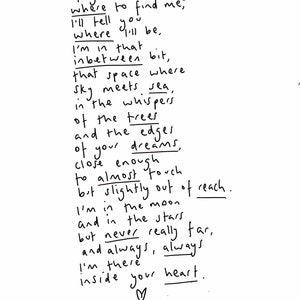 where to find me,
I'll tell you
where I'll be,
I'm in that
inbetween bit,
that space where
sky meets sea,
in the whispers
of the trees
and the edges
of your dreams,
close enough
to almost touch
but slightly out of reach.
I'm in the moon
and in the stars
but never really far,
and always, always
I'm there
inside your heart.